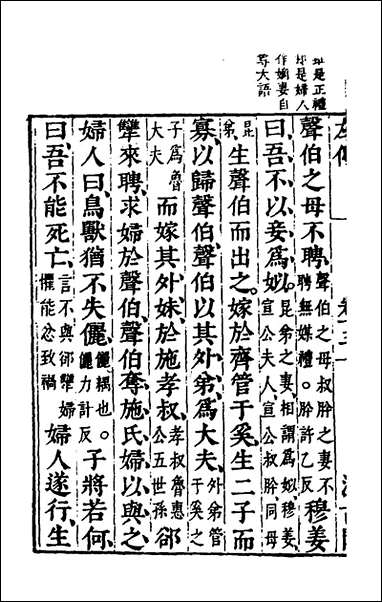 却是婦人
作嫡妻自
尊大語
聲伯之母不聘、聲伯之母叔肸之妻不聘無媒禮。肸許乙反穆姜
曰、吾不以妾為姒。昆弟之妻、相謂為姒、穆姜、宣公夫人、宣公叔肸、同母
昆弟生聲伯而出之。嫁於齊管于奚、生二子而
寡、以歸聲伯、聲伯以其外弟、為大夫、外弟管于奚之
子為魯大夫而嫁其外妹、於施孝叔、孝叔魯惠公五世孫郤
犨來聘、求婦於聲伯、聲伯奪施氏婦以與之、
婦人曰、鳥獸猶不失儷、儷耦也。儷力計反子將若何、
曰、吾不能死亡、言不與郤犨婦懼能忿致禍婦人遂行、生